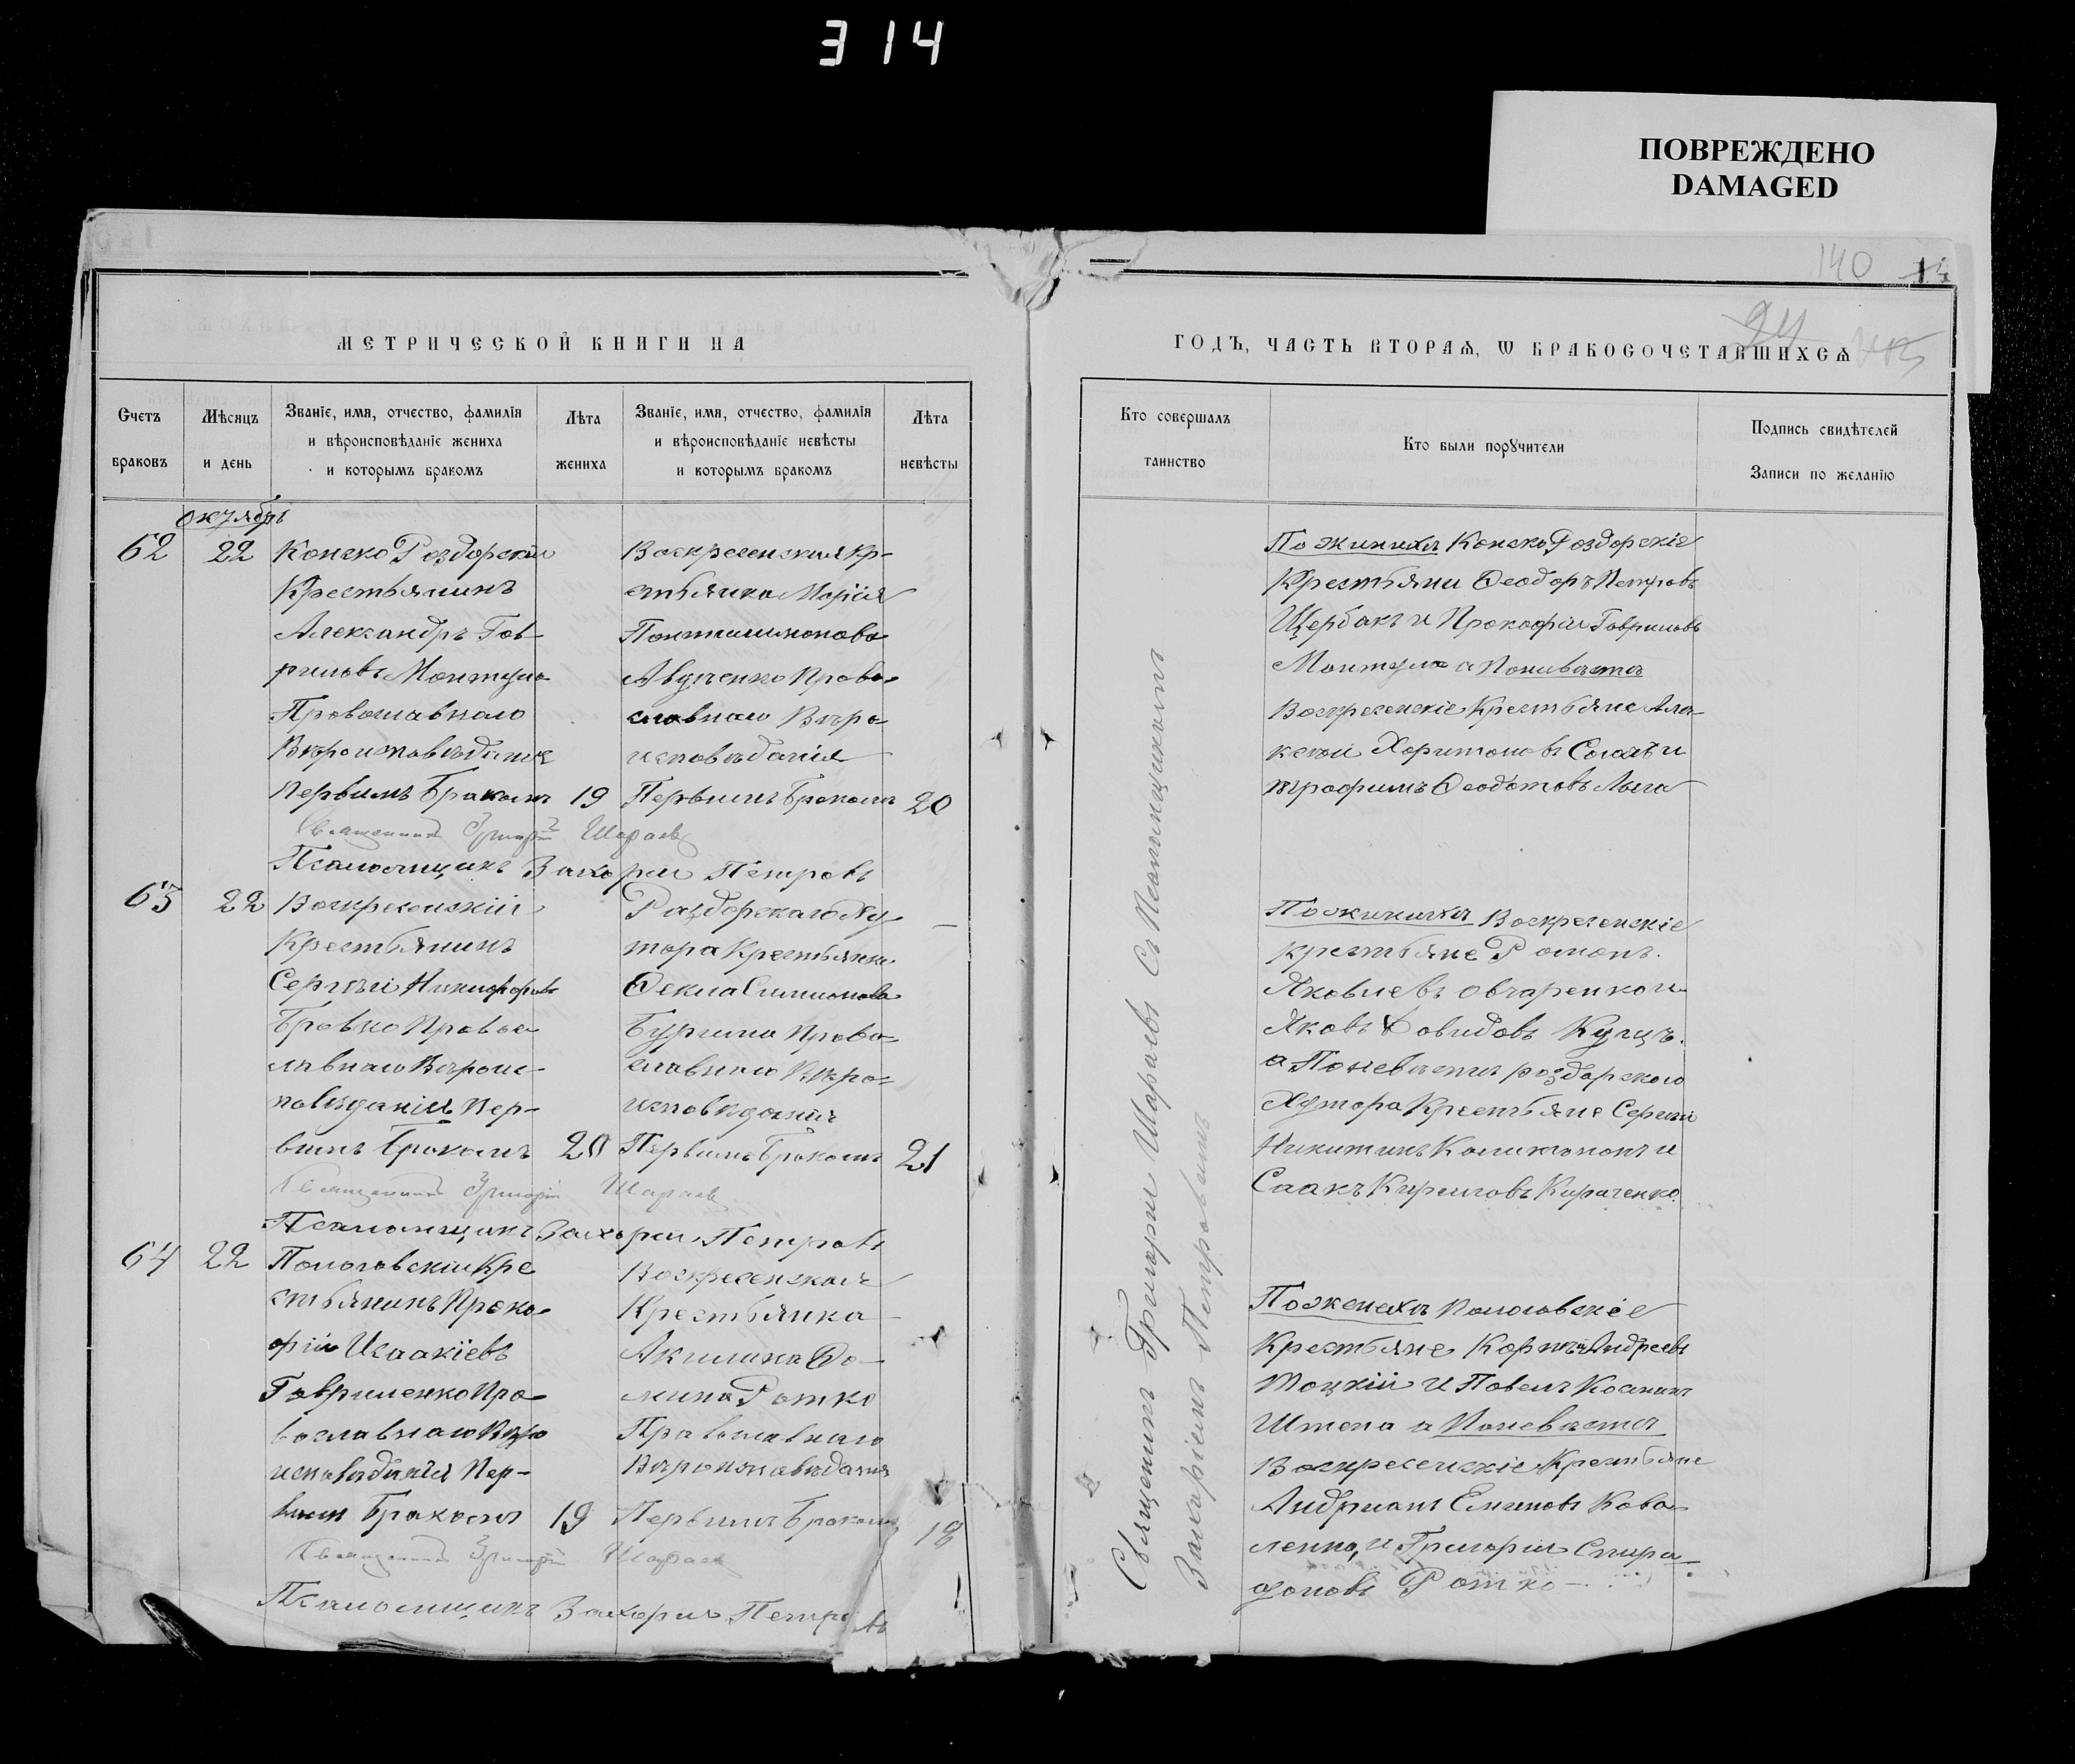 314
ПОВРЕЖДЕНО
DAMAGED
140
МЕТРИЧЕСКОЙ КНИГИ НА
Счетъ браковъ
Мѣсяцъ и день
Званіе, имя, отчество, фамилія и вѣроисповѣданіе жениха и которымъ бракомъ
Лѣта жениха
Званіе, имя, отчество, фамилія и вѣроисповѣданіе невѣсты и которымъ бракомъ
Лѣта невѣсты
Октябрь
62
22
Конско Роздорскій
Крестьянинъ
Александръ Гав-
риловъ Монтула
Православнаго
Вѣроисповѣданія
Первымъ Бракомъ
19
Воскресенская Кр-
стьянка Марія
Пантилимонова
Авдченко Право-
славнаго Вѣро
исповѣданія
Первымъ Бракомъ
20
Священникъ Григорій Шараевъ
Псаломщикъ Захарій Петровъ
63
22
Воскресенскій
Крестьянинъ
Сергѣй Никифоровъ
Бровко Правос
лавнаго Вѣроис-
повѣданія Пер-
вымъ Бракомъ
20
Раздорскаго Ху
тора Крестьянка
Ѳекла Симионова
Бургина Право-
славнаго Вѣро-
исповѣданія
Первымъ Бракомъ
21
Священникъ Григорій Шараевъ
Псаломщикъ Захарій Петровъ
64
22
Пологовскій Кре
стьянинъ Проко
фій Исаакіевъ
Гавриленко Пра
вославнаго Вѣро
исповѣданія Пер-
вымъ Бракомъ
19
Воскресенская
Крестьянка
Акилина Ѳо-
мина Ротко
Православнаго
Вѣроисповѣданія
Первымъ Бракомъ
18
Священникъ Григорій Шараевъ
Псаломщикъ Захарій Петровъ
ГОДЪ, ЧАСТЬ ВТОРАѦ, Ѡ БРАКОСОЧЕТАВШИХСѦ
24
Кто совершалъ таинство
Кто были порꙋчители
Подпись свидѣтелей Записи по желанію
Священникъ Григорій Шараевъ Съ Псаломщикомъ
Захаріемъ Петровымъ
По жинихѣ Конско Роздорскіе
Крестьяни Ѳеодоръ Петровъ
Щербакъ и Прокофій Гавриловъ
Монтула а По нивѣстѣ
Воскресенскіе Крестьяне Алек-
кеѣй Харитоновъ Соляъ и
Трофимъ Ѳеодотовъ Лыга
По жинихѣ Воскресенскіе
крестьяне Романъ
Яковлевъ Овчаренко и
Яковъ Давидовъ Куцъ.
а По невѣстѣ роздорскаго
Хутора Крестьяне Сергій
Никитинъ Калиманом и
Саакъ Кириловъ Кириченко.
По женихѣ Пологовскіе
Крестьяне Корнѣй Андреевъ
Тоцкій И Павелъ Косминъ
Штепа а По невѣстѣ
Воскресенскіе Крестьяне
Андріанъ Емиловъ Кова
ленко, и Григорій Спири-
доновъ Ротко